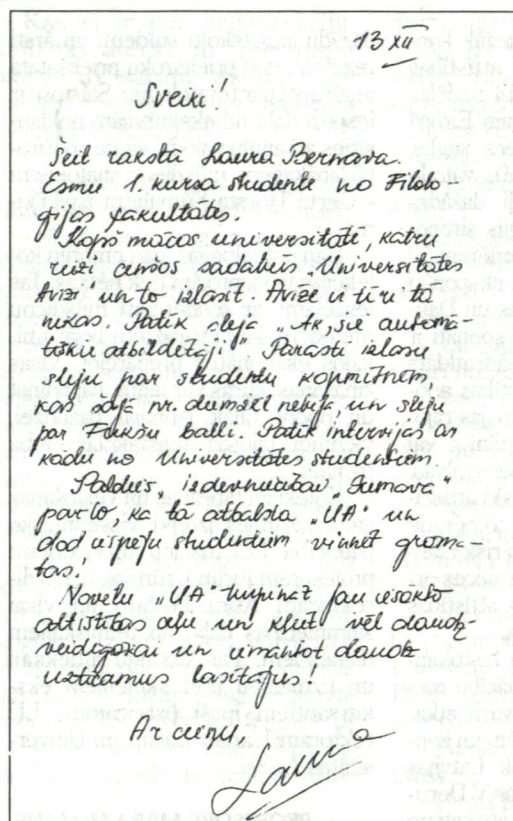 13 XII
Sveiki!
Šeit raksta Laura Bernava.
Esmu 1. kursa studente no Filolo-
ģijas fakultātes.
Kopš mācos universitātē, katru
reizi cenšos sadabūt Universitātes
Avīzi un to izlasīt! Avīze ir tīri tā
nekas. Patīk sleja "Ak, šie automā-
tiskie atbildētāji". Parasti izlasu
sleju par studentu kopmītnēm,
kas šajā nr. diemžēl nebija, un sleju
par Fukšu balli. Patīk intervija ar
kādu no Universitātes studentiem.
Paldies, izdevniecībai "Jumava"
par to, ka tā atbalsta "UA" un
dod iespēju studentiem vinnēt grāma-
tas!
Novēlu "UA" turpināt jau iesākto
attīstības ceļu un kļūt vēl daudz
veidīgākai un izmantot daudz
uzticamus lasītājus!
Ar cieņu,
Laura